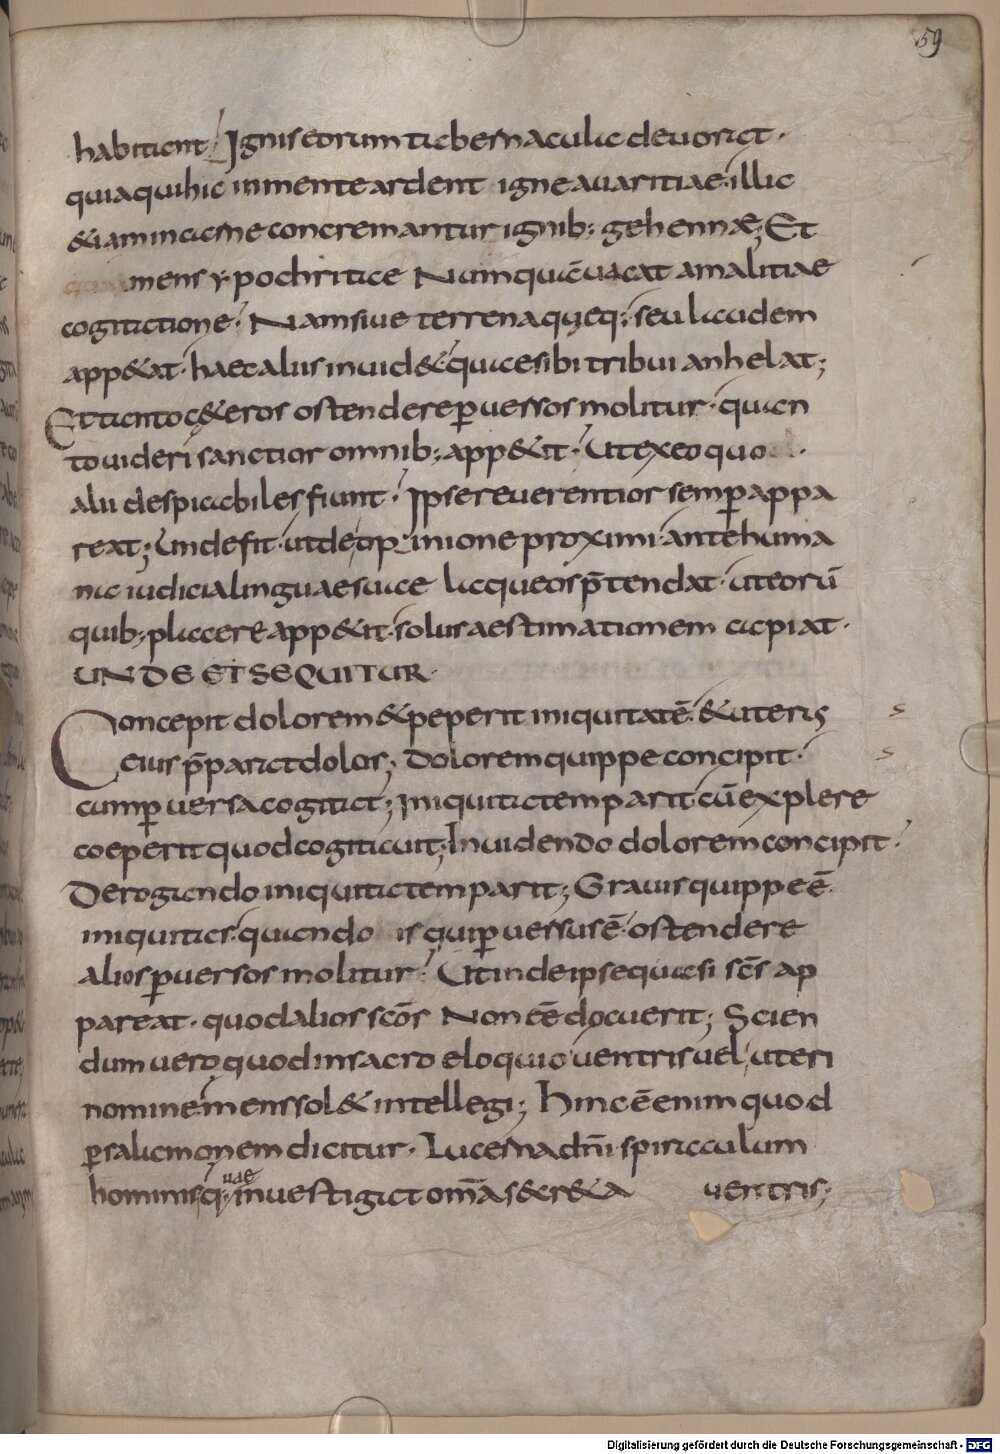 59
habitant. Ignis eorum tabernacula deuorat.
quia qui hic in mente ardent igne auaritiae. illic
& iam in carne concremantur ignib; gehennæ; Et
mens ypochritae Numquā uacat a malitiae
cogitatione. Nam siue terrena quęq; seu laudem
app&at. haec aliis inuid& quae sibi tribui anhelat;
Et tanto c&eros ostendere puersos molitur. quan
to uideri sanctior omnib; app&it. Ut ex eo quo
alii despicabiles fiunt. Ipse reuerentior semp appa
reat; Unde fit. ut de opinione proximi. ante huma
na iudicia linguae suae laqueos p̄tendat. ut eorū
quib; placere app&it. solus aestimationem capiat.
UNDE ET SEQUITUR.
Concepit dolorem & peperit iniquitatē. & uterus
eius p̄parat dolos; Dolorem quippe concipit.
cum puersa cogitat; Iniquitatem parit. cū explere
coeperit quod cogitauit; Inuidendo dolorem concipit.
Derogando iniquitatem parit; Grauis quippe ē
iniquitas. quando is qui puersus ē. ostendere
alios puersos molitur. Ut inde ipse quasi sc̄s ap
pareat. quod alios scōs Non eē docuerit; Scien
dum uero quod in sacro eloquio uentris uel uteri
nomine. mens sol& intellegi; Hinc ē enim quod
p salamonem dicitur. Lucerna dn̄i spiraculum
hominis. q; uae inuestigat om̄a secreta uentris;
Digitalisierung gefördert durch die Deutsche Forschungsgemeinschaft - DFG